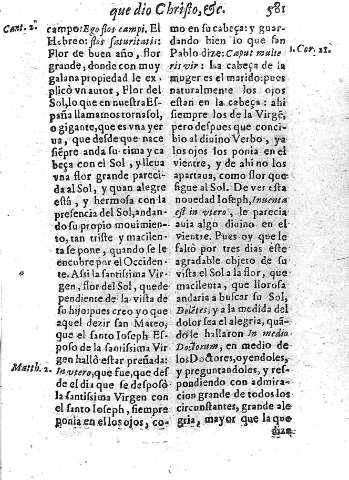 que dio Christo, &c. 581
Cant. 2.
campo: Ego flos campi. El
Hebreo: flos saturitatis:
Flor de buen año, flor
grande, donde con muy
galana propiedad le ex-
plicò vn autor, Flor del
Sol, lo que en nuestra Espa-
ña llamamos tornasol,
o gigante, que es vna yer
ua, que desde que nace
siẽpre anda su cima y ca
beça con el Sol, y lleua
vna flor grande pareci-
da al Sol, y quan alegre
està, y hermosa con la
presencia del Sol, andan-
do su propio mouimien-
to, tan triste y macilen-
ta se pone, quando se le
encubre por el Occiden-
te. Assi la santissima Vir
gen, flor del Sol, que de
pendiente de la vista de
su hijo: pues creo yo que
aquel dezir san Mateo,
que el santo Ioseph Es-
poso de la santissima Vir
gen hallò estar preñada:
Matth. 2.
In vtero, que fue, que des-
de el dia que se desposò
la santissima Virgen con
el santo Ioseph, siempre
ponia en el los ojos, co-
mo en su cabeça: y guar-
dando bien lo que san
1. Cor. 11.
Pablo dize: Caput mulie
ris vir: La cabeça de la
muger es el marido: pues
naturalmente los ojos
estan en la cabeça: ahi
siempre los de la Virgẽ,
pero despues que conci-
bio al diuino Verbo, ya
los ojos los ponia en el
vientre, y de ahi no los
apartaua, como flor que
sigue al Sol. De ver esta
nouedad Ioseph, Inuenta
est in vtero, le parecia
auia algo diuino en el
vientre. Pues oy que le
faltò por tres dias este
agradable objeto de su
vista el Sol a la flor, que
macilenta, que llorosa
andaria a buscar su Sol,
Dolētes; y a la medida del
dolor sea el alegria, quan-
do le hallaron In medio
Doctorum, en medio de
los Doctores, oyendoles,
y preguntandoles, y res-
pondiendo con admira-
cion grande de todos los
circunstantes, grande ale
gria, mayor que la que
dize